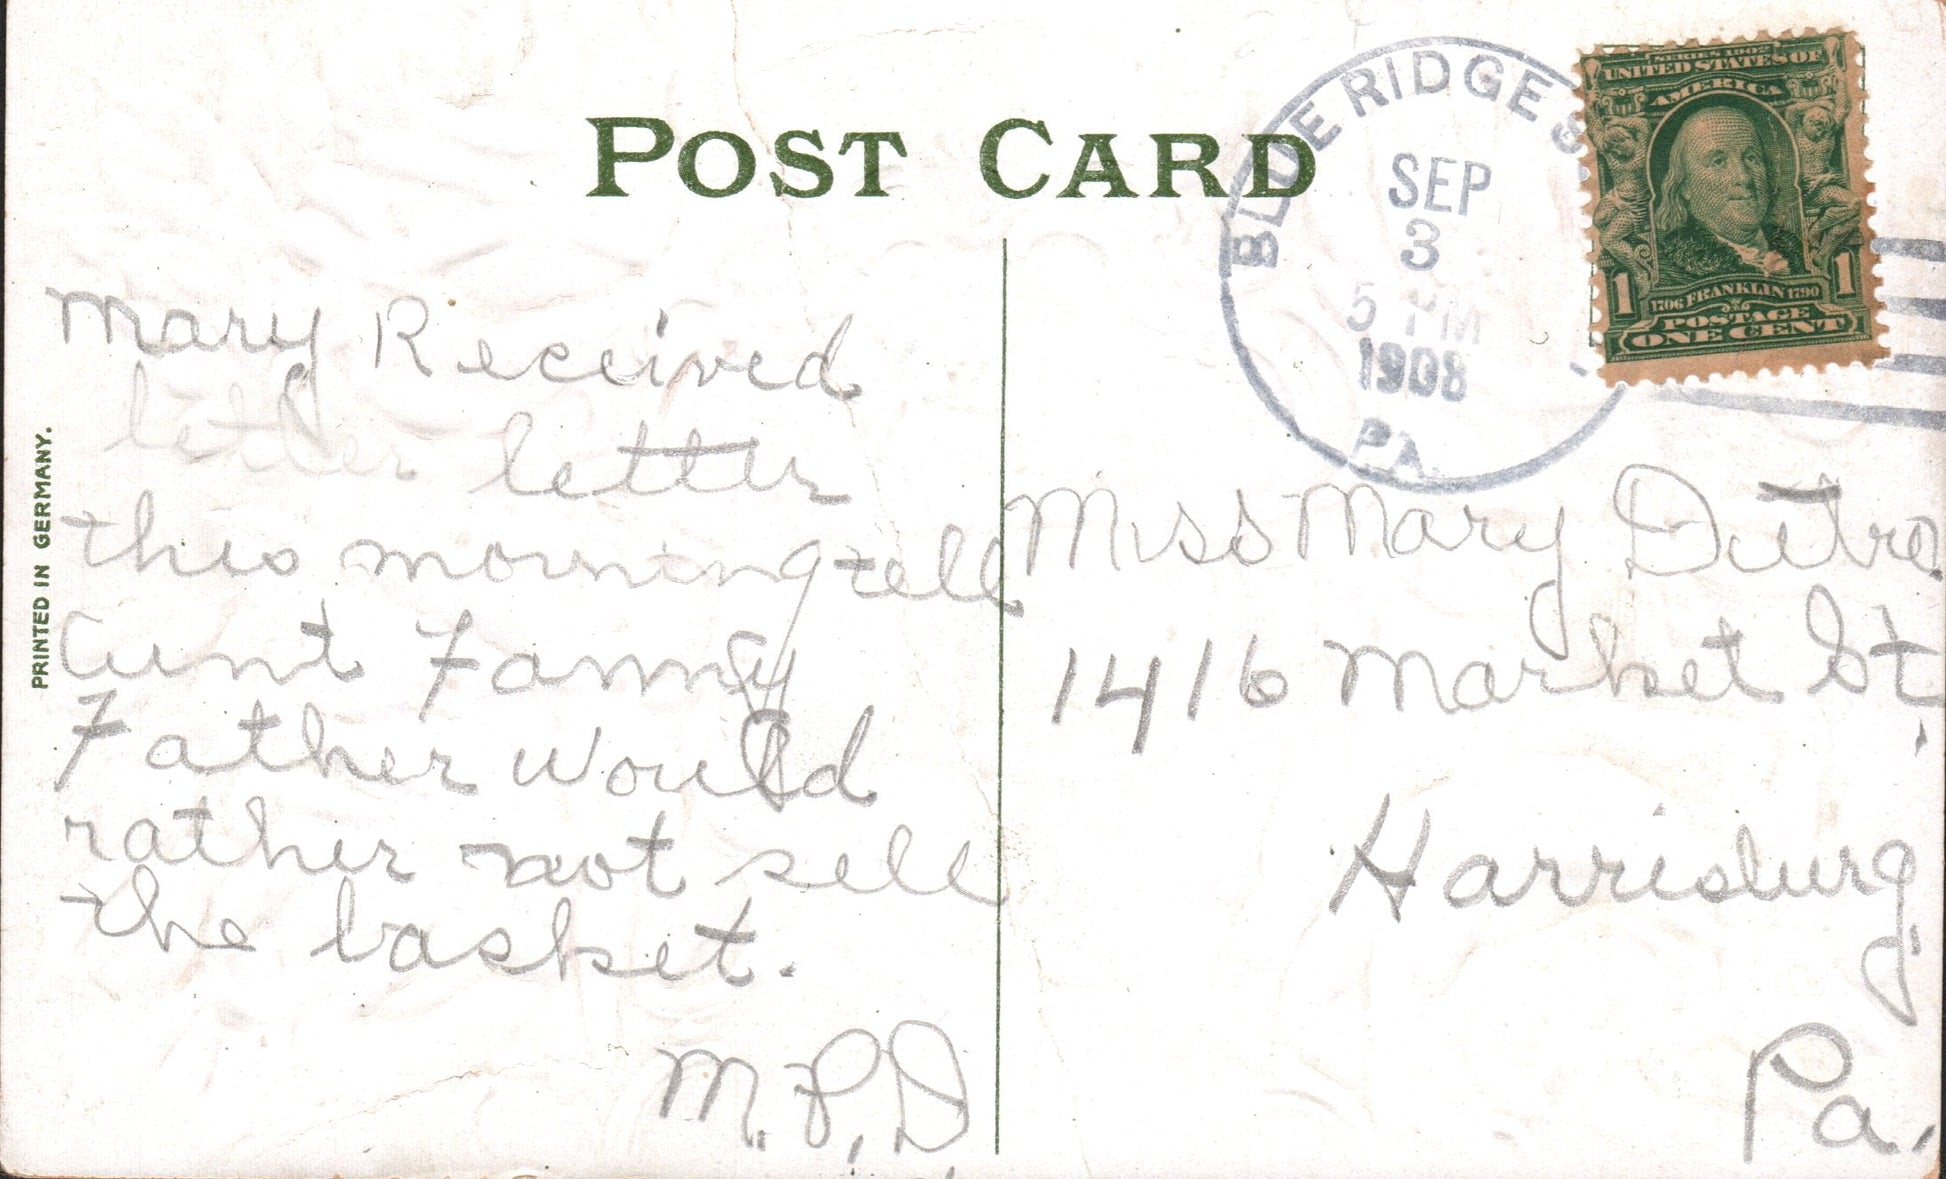 POST CARD
BLUE RIDGE S
SEP
3
5 PM
1908
PA.
SERIES 1902
UNITED STATES OF
AMERICA
1 1706 FRANKLIN 1790 1
POSTAGE
ONE CENT
PRINTED IN GERMANY.
Mary Received
letter letter
this morning tell
Aunt Fanny
Father would
rather not sell
the basket.
M.P.D.
Miss Mary Dutro
1416 Market St,
Harrisburg,
Pa.